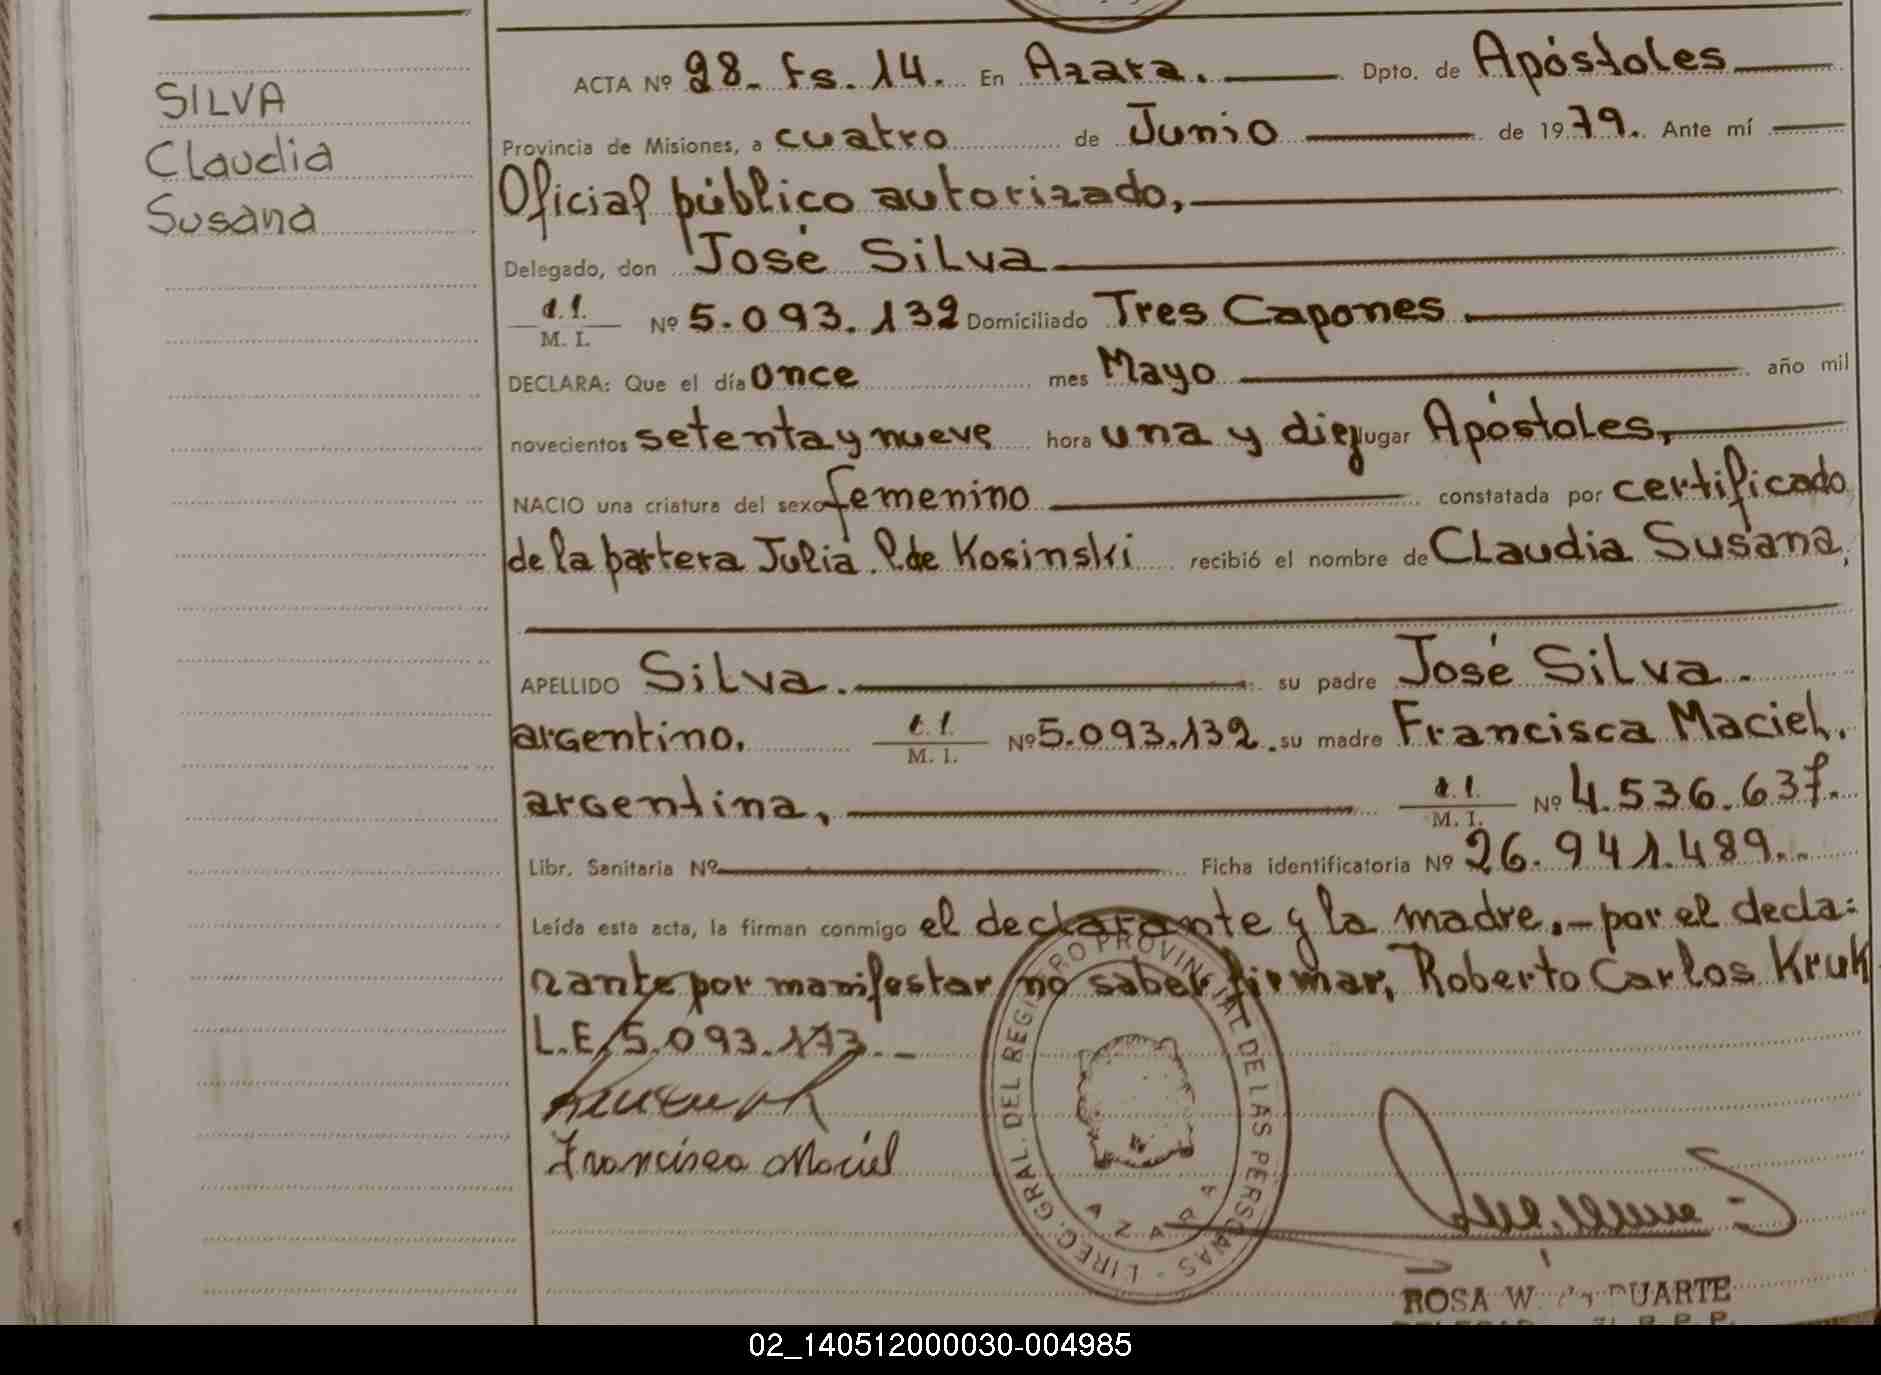 SILVA
Claudia
Susana
ACTA Nº 28. Fs. 14. En Azara. Dpto. de Apóstoles
Provincia de Misiones, a cuatro de Junio de 1979. Ante mí
Oficial público autorizado,
Delegado, don José Silva
M. I. Nº 5.093.132 Domiciliado Tres Capones
DECLARA: Que el día once mes Mayo año mil
novecientos setenta y nueve hora una y diez lugar Apóstoles,
NACIO una criatura del sexo femenino constatada por certificado
de la partera Julia P. de Kosinski recibió el nombre de Claudia Susana,
APELLIDO Silva. su padre José Silva.
argentino. M. I. Nº 5.093.132. su madre Francisca Maciel.
argentina, M. I. Nº 4.536.637.
Libr. Sanitaria Nº Ficha identificatoria Nº 26.941.489.
Leída esta acta, la firman conmigo el declarante y la madre.- por el decla=
rante por manifestar no saber firmar, Roberto Carlos Kruk
L.E. 5.093.173.-
Francisca Maciel
DIREC. GRAL. DEL REGISTRO PROVINCIAL DE LAS PERSONAS
AZARA
ROSA W. DUARTE
02_140512000030-004985